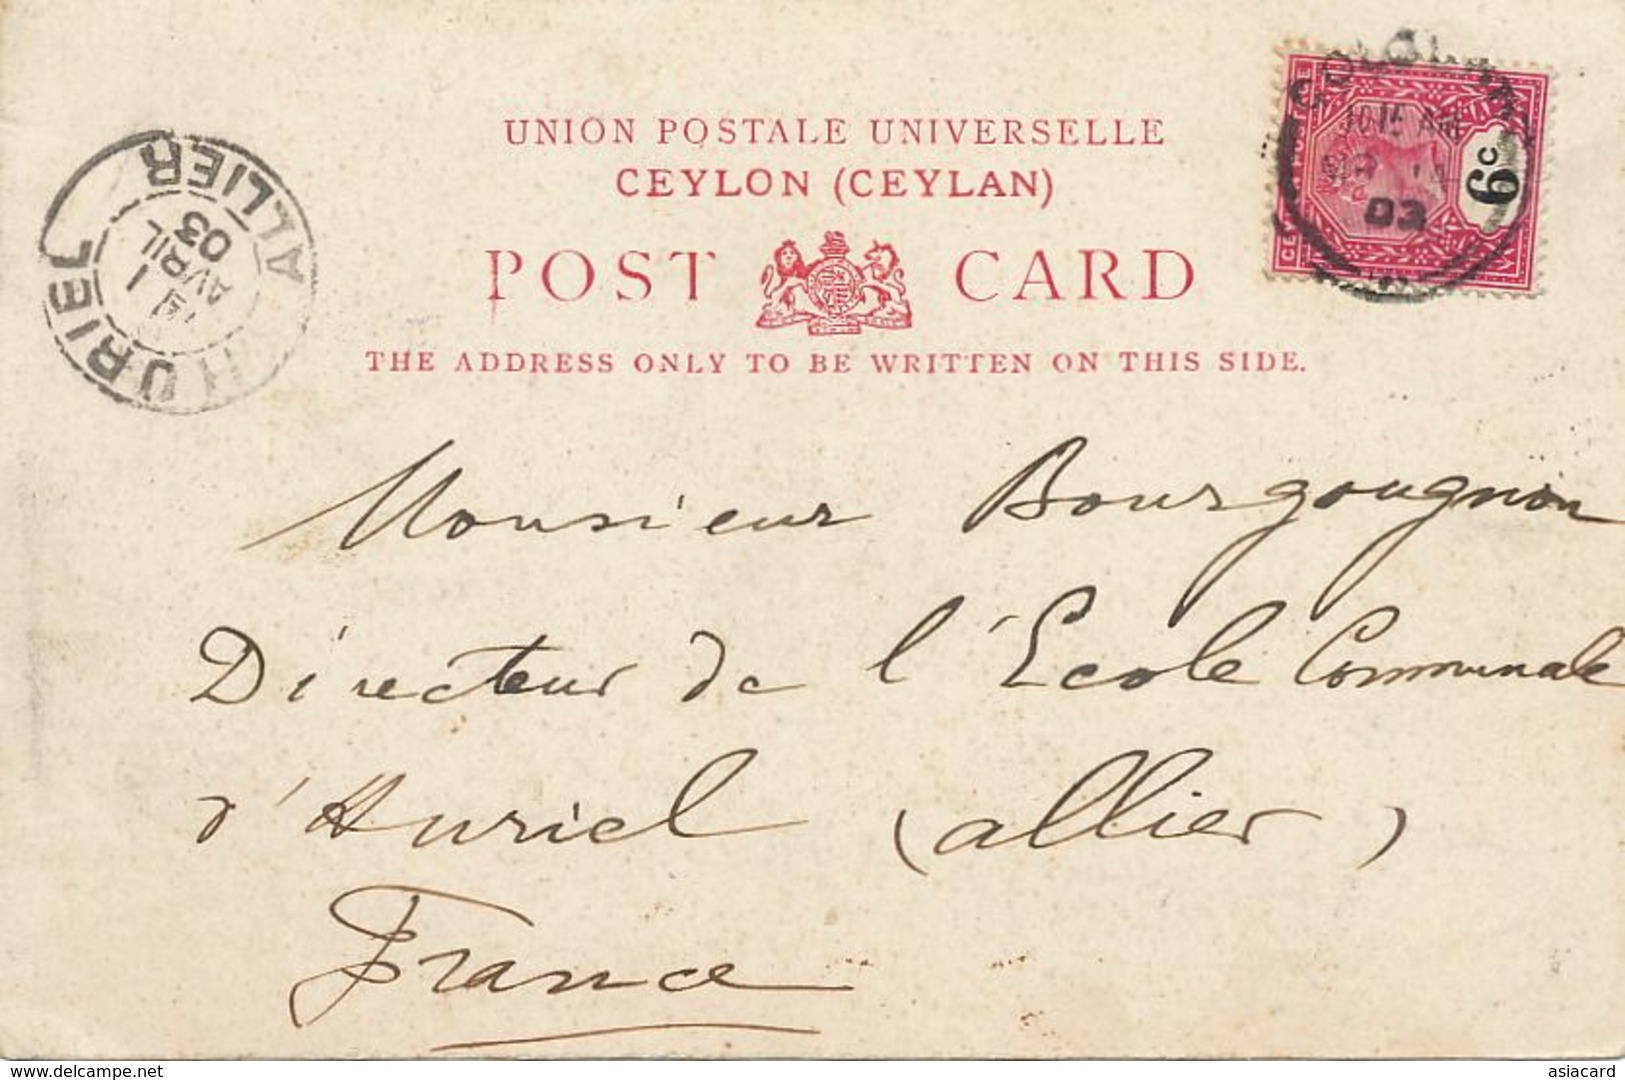 UNION POSTALE UNIVERSELLE
CEYLON (CEYLAN)
POST CARD
THE ADDRESS ONLY TO BE WRITTEN ON THIS SIDE.
6c
03
HURIEL
ALLIER
AVRIL
03
Monsieur Bourgougnon
Directeur de l'Ecole Communale
d'Huriel (allier)
France
www.delcampe.net
asiacard